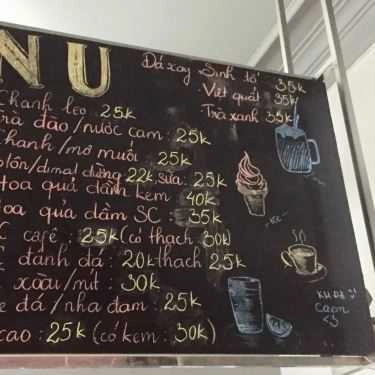 NU
Đá xay Sinh tố 35k
Việt quất 35k
Trà xanh 35k
Chanh leo 25k
trà đào/nước cam: 25k
Chanh/mơ muối 25k
22k, sữa: 25k
Hoa quả dầm kem 40k
Hoa quả dầm SC: 35k
C cafê: 25k (có thạch 30k)
đánh đá: 20k thạch 25k
xoài/mít: 30k
đá/nha đam: 25k
cao: 25k (có kem: 30k)